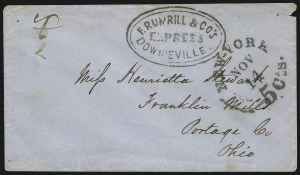 F. RUMRILL & CO'S
EXPRESS
DOWNIEVILLE.
NEW YORK
NOV
14
5 Cts.
Miss Henrietta
Franklin Mills
Portage Co
Ohio